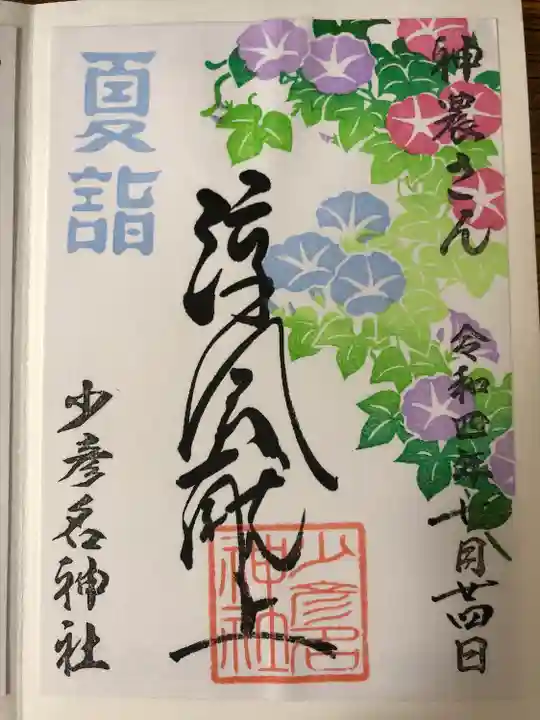 神農さん
令和四年七月廿四日
涼風献上
夏詣
少彦名神社
少彦名
神社